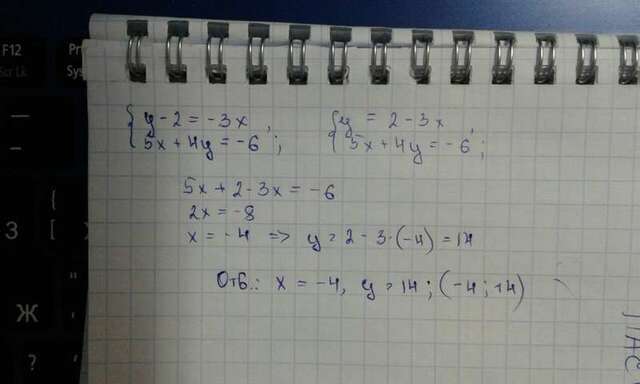 F12
Scr Lk
З
Ж
?
{ y - 2 = -3x, { y = 2 - 3x,
5x + 4y = -6; 5x + 4y = -6;
5x + 2 - 3x = -6
2x = -8
x = -4 => y = 2 - 3·(-4) = 14
Отв.: x = -4, y = 14; (-4; 14)